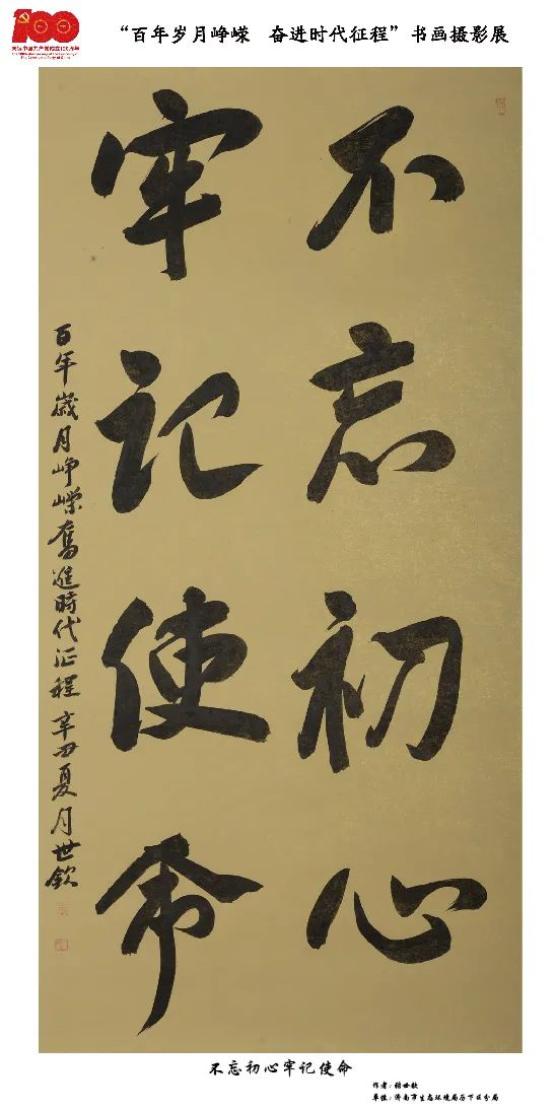 100
“百年岁月峥嵘 奋进时代征程”书画摄影展
不忘初心
牢记使命
百年歲月峥嶸奮進時代征程 辛丑夏月世欽
不忘初心牢记使命
单位：济南市生态环境局历下区分局